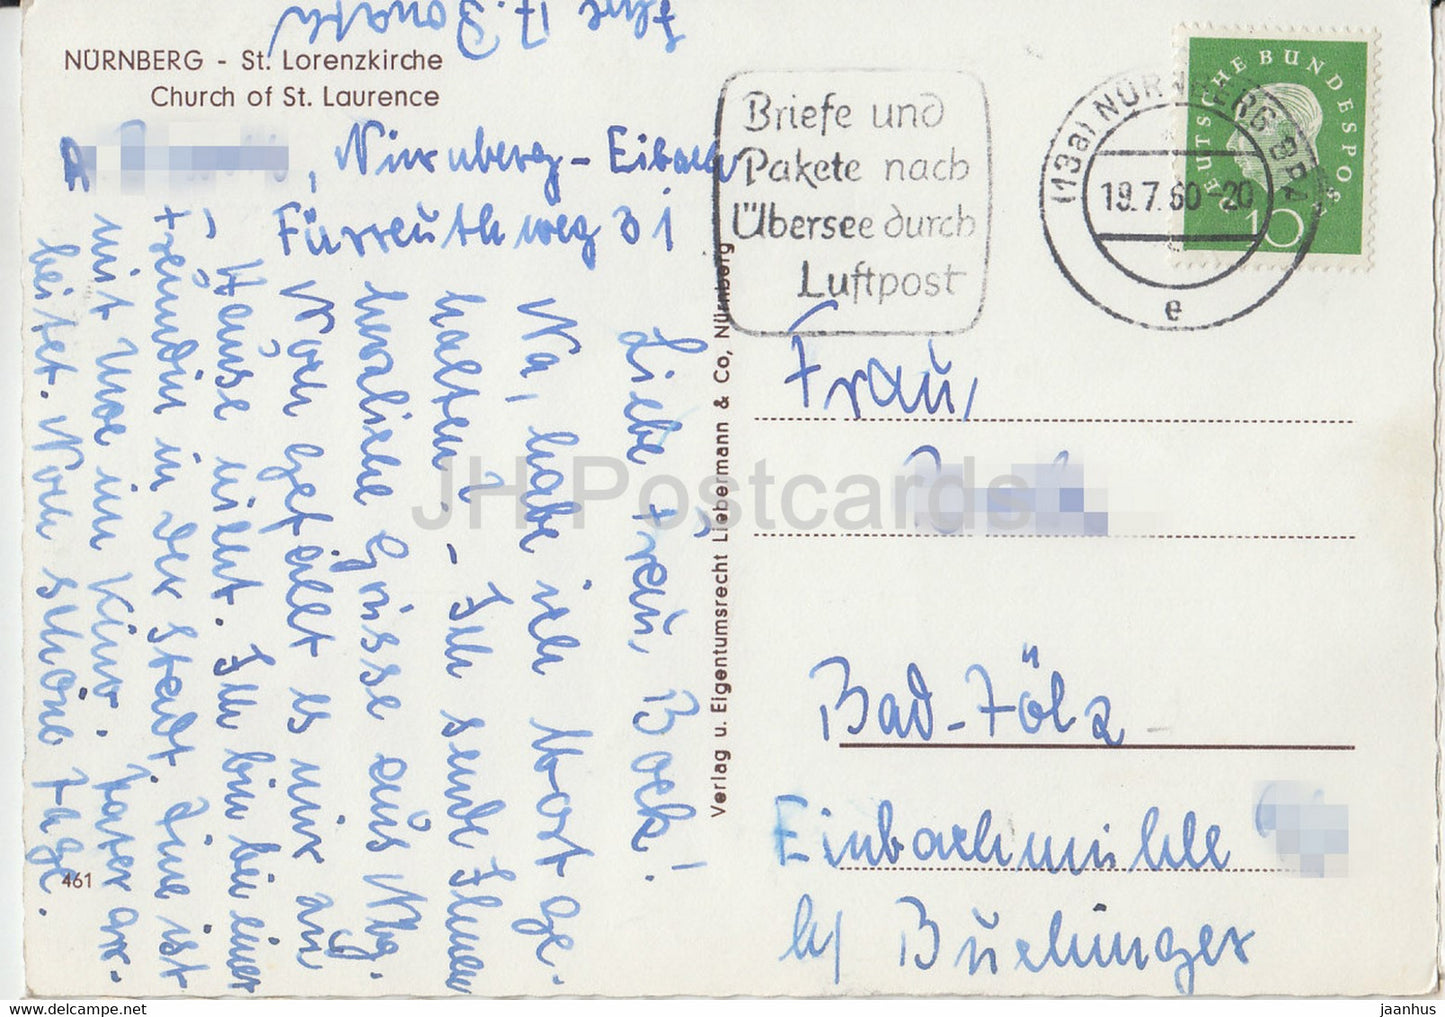 NÜRNBERG - St. Lorenzkirche
Church of St. Laurence
, Nürnberg-Eibach
Fürreuthweg 31
Liebe Frau, Bock!
Na, habe ich Wort ge-
halten? - Ich sende Ihnen
herzliche Grüsse aus Nbg.
Noch gefällt es mir zu
Hause nicht. Ich bin bei einer
Freundin in der Stadt. Eine ist
mit Uwe im Kino. Vater ar-
beitet. Noch schöne Tage.
Ihre
461
Verlag u. Eigentumsrecht Liebermann & Co, Nürnberg
Briefe und
Pakete nach
Übersee durch
Luftpost
(13a) NÜRNBERG
19.7.60-20
e
DEUTSCHE BUNDESPOST
10
Frau,
Bad-Tölz
Einbachmühle
b/ Buchinger
JH Postcards
www.delcampe.net
jaanhus